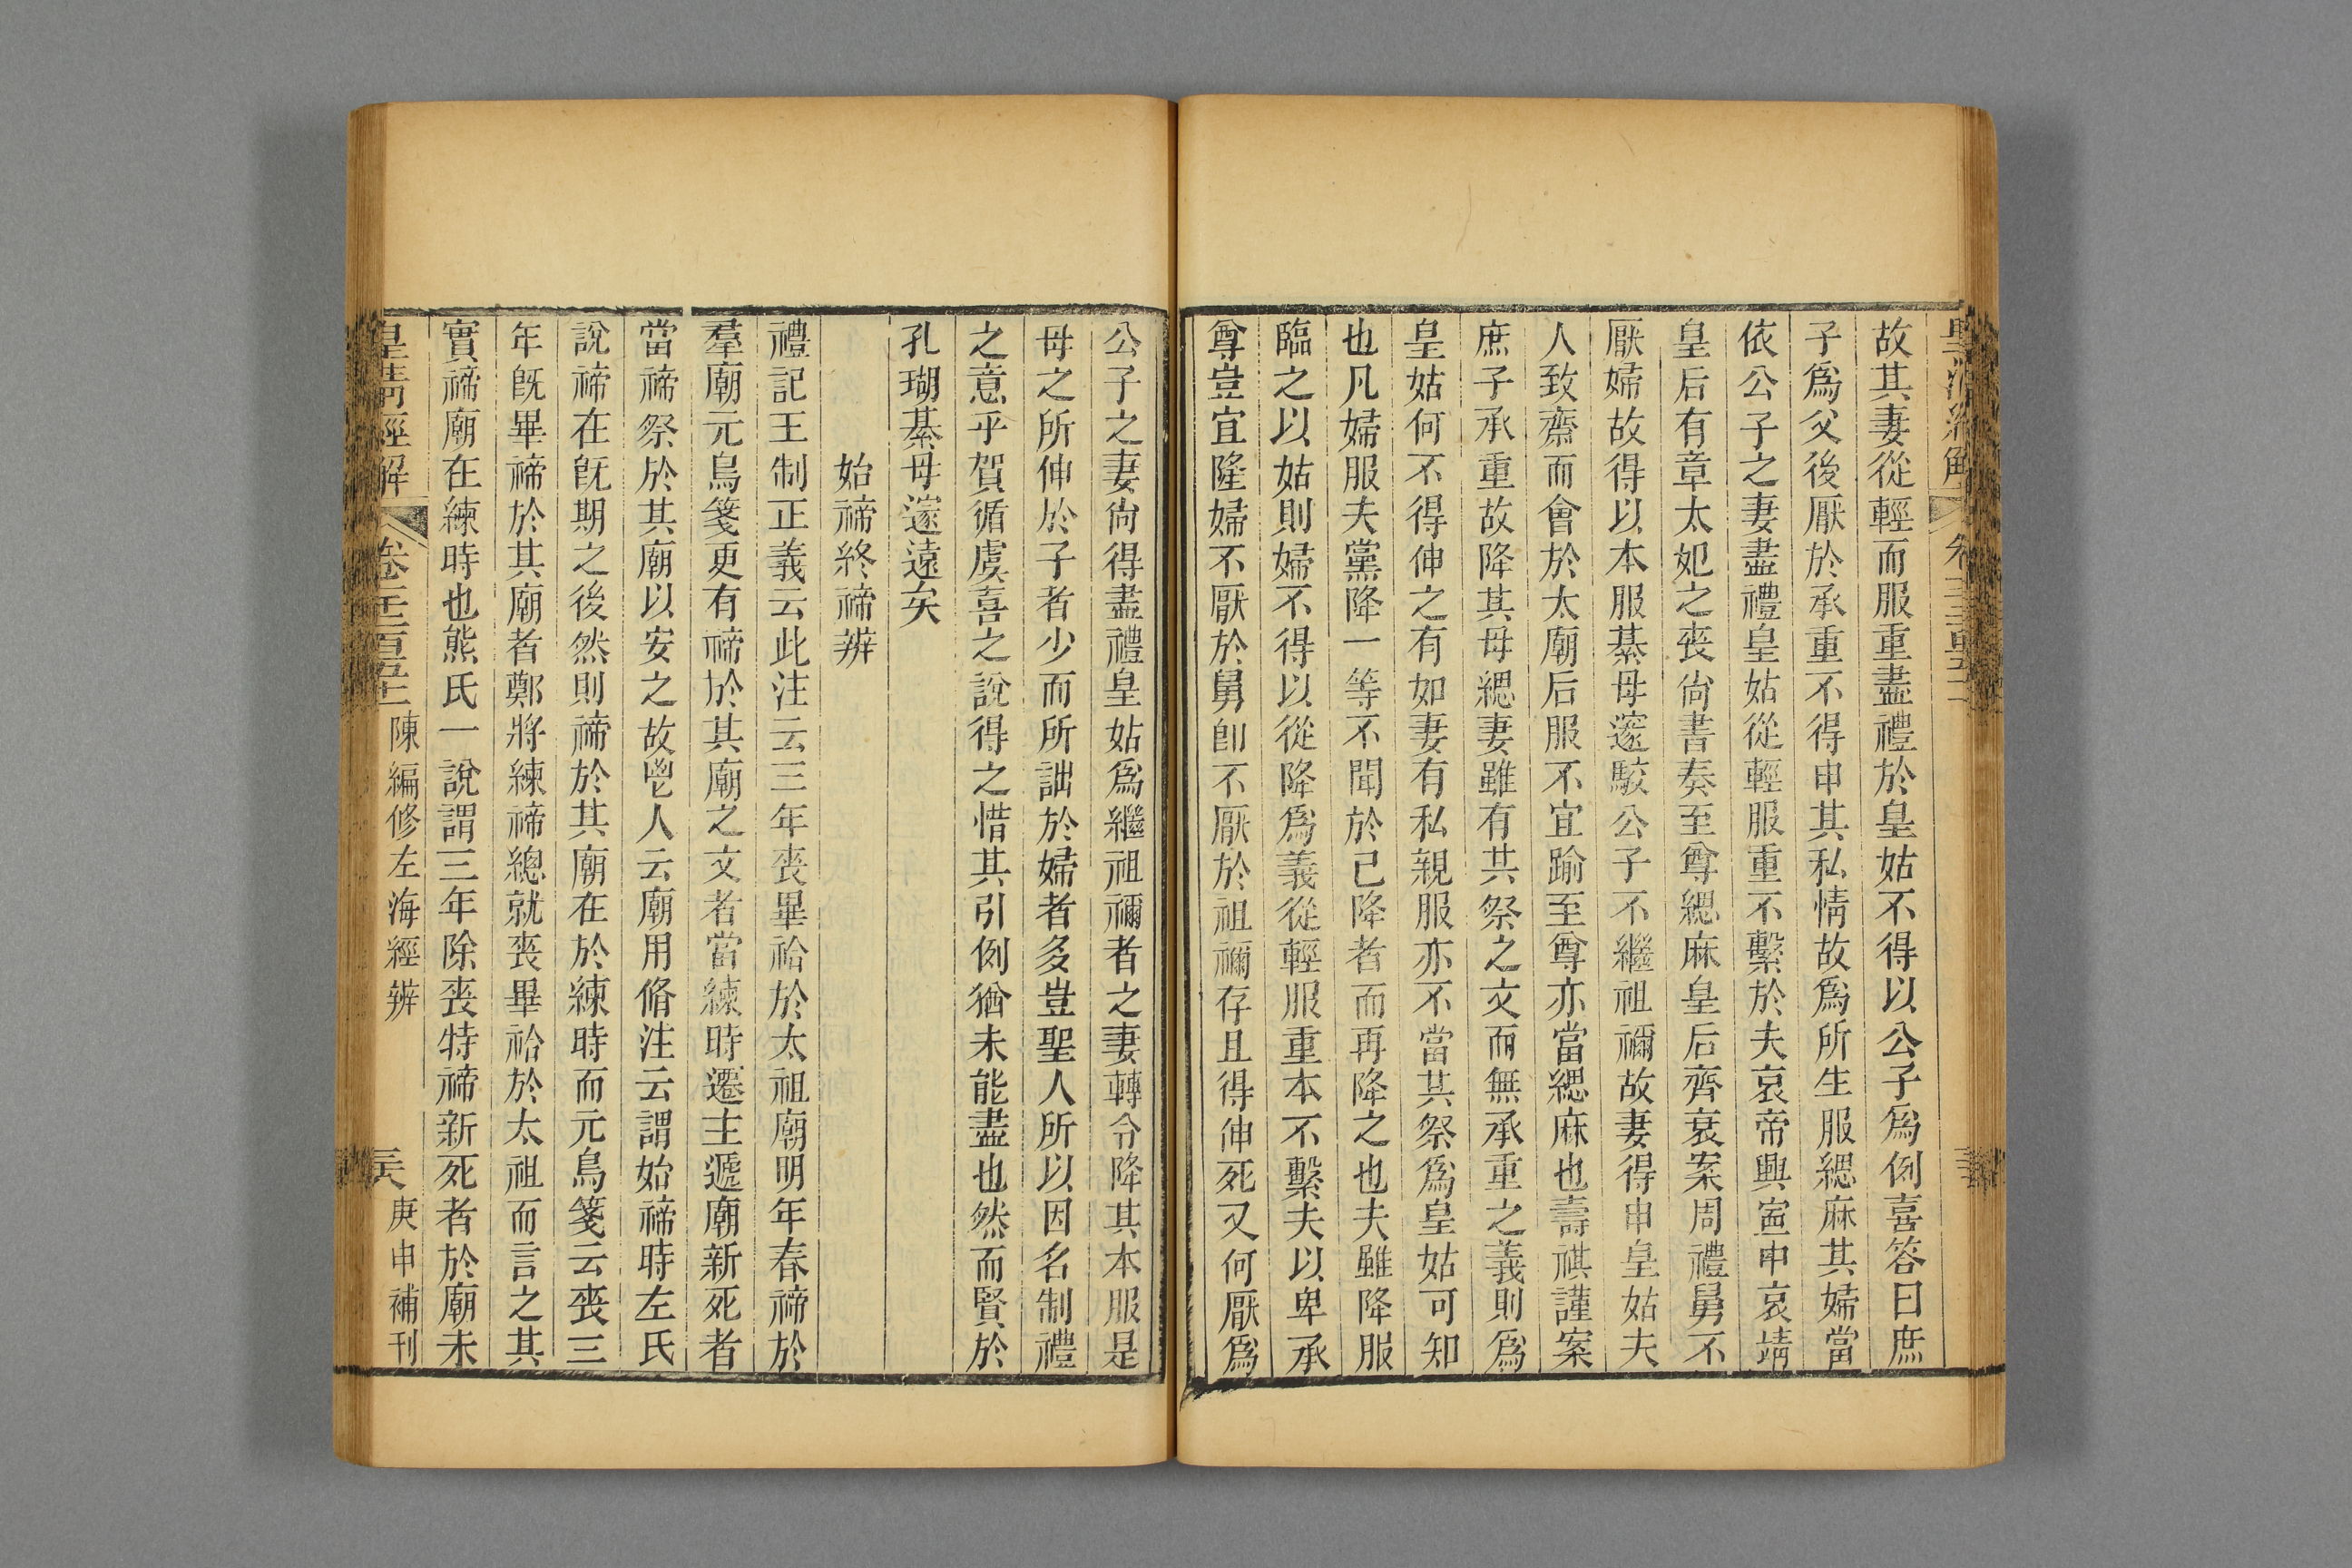 故其妻從輕而服重盡禮於皇姑不得以公子爲例喜答曰庶
子爲父後厭於承重不得申其私情故爲所生服緦麻其婦當
依公子之妻盡禮皇姑從輕服重不繫於夫哀帝興寍中哀靖
皇后有章太妃之喪尙書奏至尊緦麻皇后齊衰案周禮舅不
厭婦故得以本服綦母邃駮公子不繼祖禰故妻得申皇姑夫
人致齋而會於太廟后服不宜踰至尊亦當緦麻也壽祺謹案
庶子承重故降其母緦妻雖有共祭之文而無承重之義則爲
皇姑何不得伸之有如妻有私親服亦不當其祭爲皇姑可知
也凡婦服夫黨降一等不聞於己降者而再降之也夫雖降服
臨之以姑則婦不得以從降爲義從輕服重本不繫夫以卑承
尊豈宜隆婦不厭於舅卽不厭於祖禰存且得伸死又何厭爲
公子之妻尙得盡禮皇姑爲繼祖禰者之妻轉令降其本服是
母之所伸於子者少而所詘於婦者多豈聖人所以因名制禮
之意乎賀循虞喜之說得之惜其引例猶未能盡也然而賢於
孔瑚綦母邃遠矣
始禘終禘辨
禮記王制正義云此注云三年喪畢祫於太祖廟明年春禘於
羣廟元鳥箋更有禘於其廟之文者當練時遷主遞廟新死者
當禘祭於其廟以安之故鬯人云廟用脩注云謂始禘時左氏
說禘在旣期之後然則禘於其廟在於練時而元鳥箋云喪三
年旣畢禘於其廟者鄭將練禘總就喪畢祫於太祖而言之其
實禘廟在練時也熊氏一說謂三年除喪特禘新死者於廟未
皇淸經解
陳編修左海經辨
庚申補刊